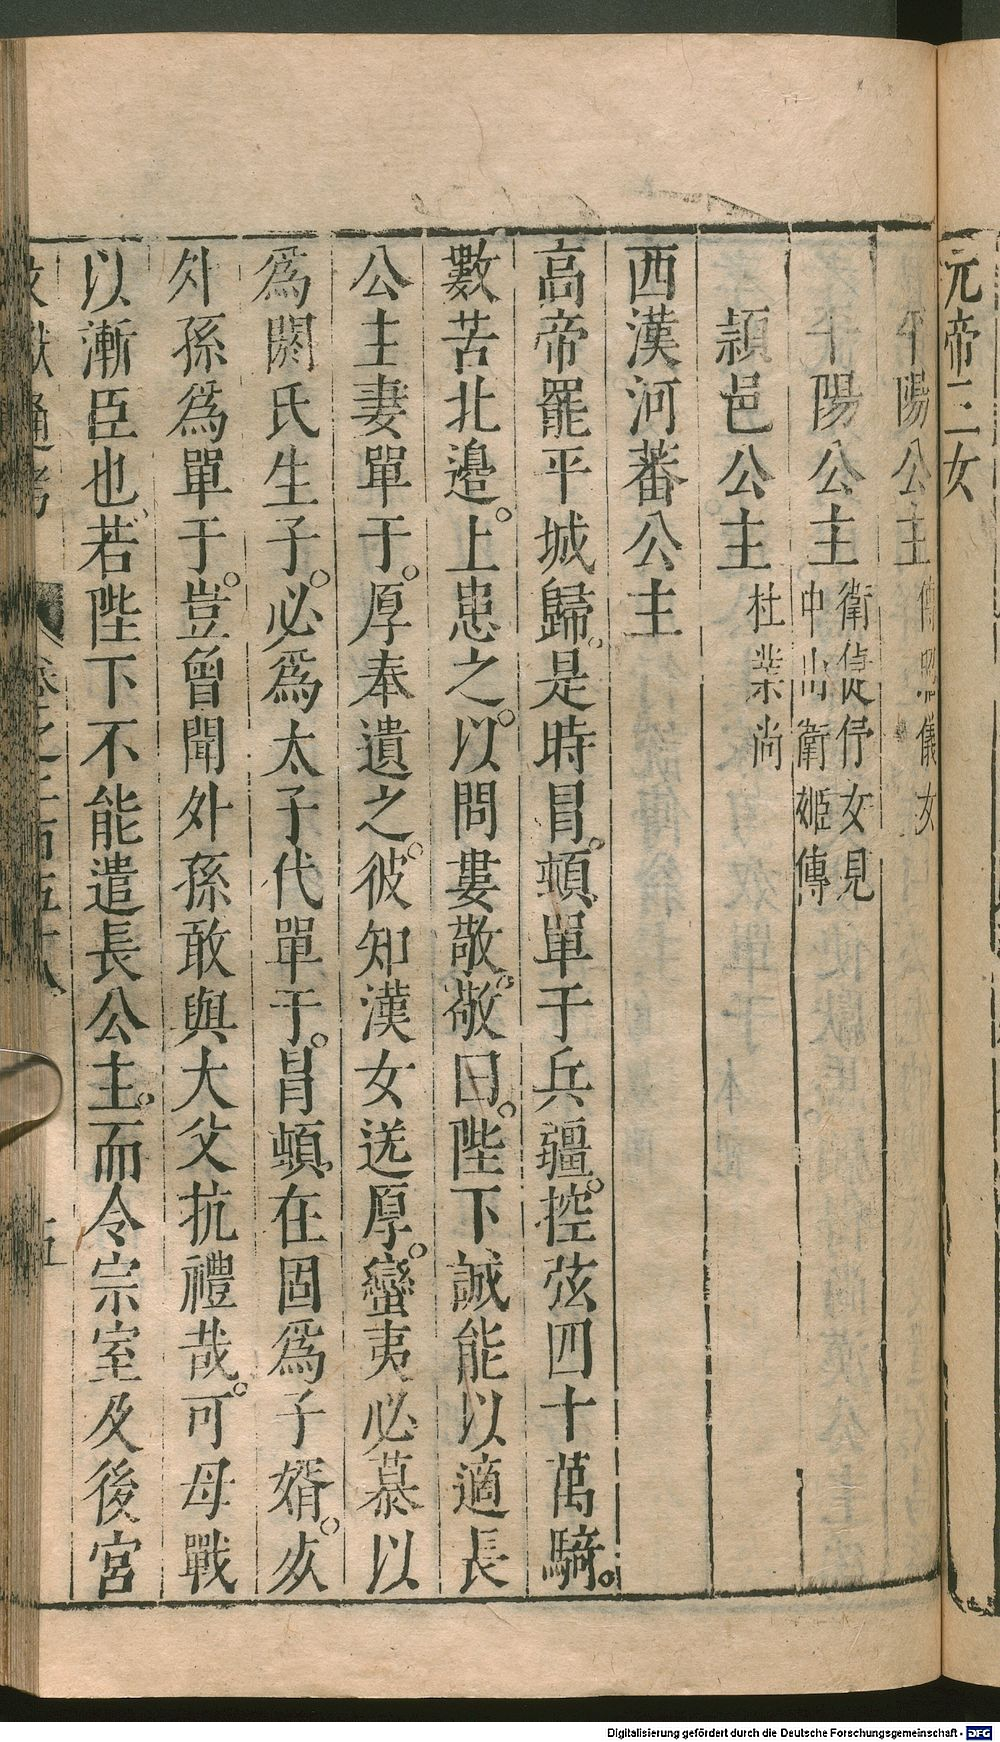 元帝三女
平陽公主傅昭儀女
平陽公主衛倢伃女見中山衛姬傳
頴邑公主杜業尚
西漢河蕃公主
高帝罷平城歸。是時冒頓單于兵疆。控弦四十萬騎。
數苦北邉。上患之。以問婁敬。敬曰。陛下誠能以適長
公主妻單于。厚奉遺之。彼知漢女送厚。蠻夷必慕以
爲閼氏生子。必爲太子代單于。冒頓在固爲子婿。死
外孫爲單于。豈曾聞外孫敢與大父抗禮哉。可毋戰
以漸臣也。若陛下不能遣長公主。而令宗室及後宮
文獻通考 卷之二百五十八 五
Digitalisierung gefördert durch die Deutsche Forschungsgemeinschaft - DFG